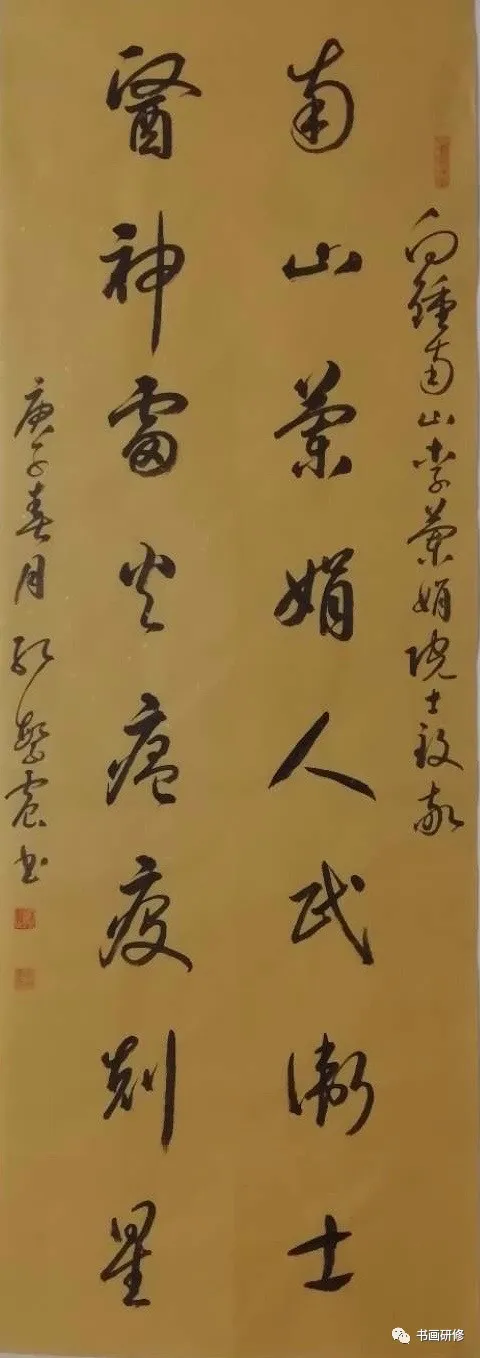 向鍾南山李蘭娟院士致敬
南山蘭娟人民衛士
醫神雷火瘟疫剋星
庚子春月 震书
书画研修